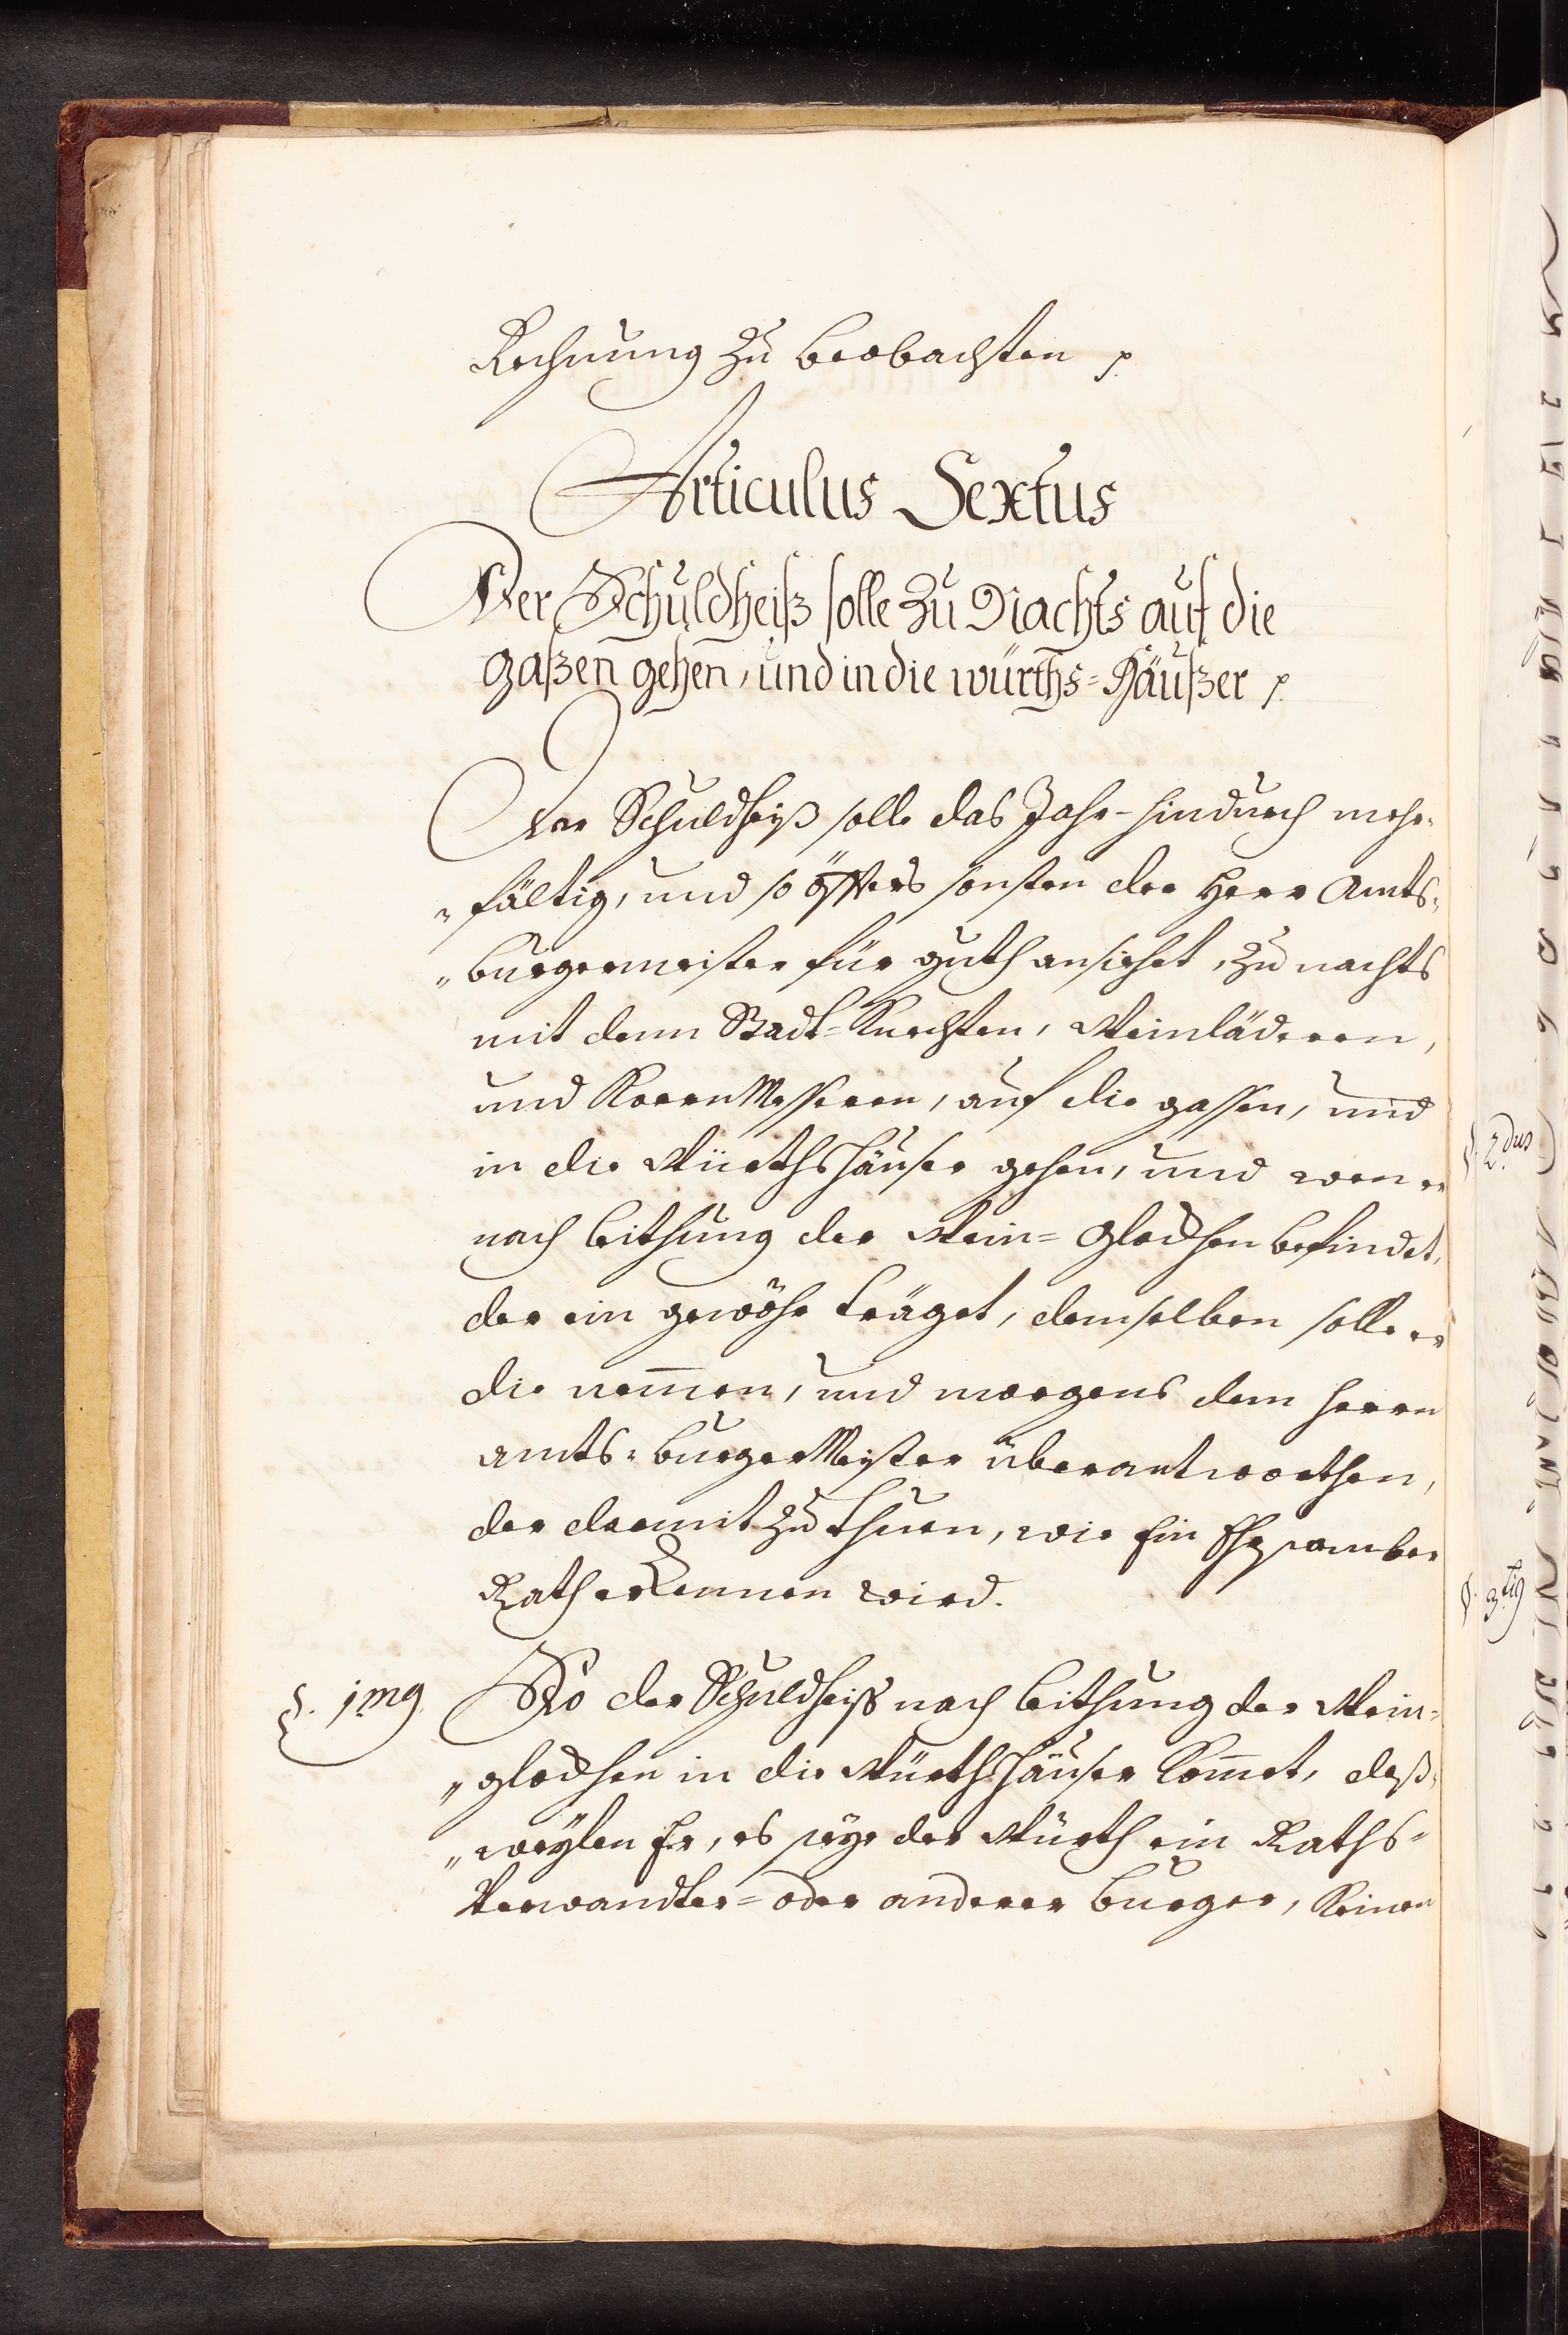 Rechnung zu beobachten p.
Articulus Sextus
Der Schuldheiß solle zu Nachts auf die
gaßen gehen, und in die würths=Häußer p.
Der Schuldheiß solle das Jahr-hindurch mehr-
"fältig, und so öffters sonsten der Herr Amts-
"burgermeister für guth ansiehet, zu nachts
mit denn Stadt=Knechten, Weinläderen,
und KornMesseren, auf die gassen, und
in die Würthshäuser gehen, und wen er
nach leithung der Wein=Glockhen befindet,
der ein gewöhr träget, demselben solle er
die nem̄en, und morgens dem herrn
amts=burgerMeister überantworthen,
der darmit zu thuen, wie Ein Ehrsamber
Rath erkennen wird.
§. 1mg. So der Schuldheiß nach leithung der Wein-
"glockhen in die Würthshäuser kom̄et, deß-
"weylen Er, es seye der Würth ein Raths-
Verwandter= oder anderer burger, keinen
§. 2dus
§. 3tig